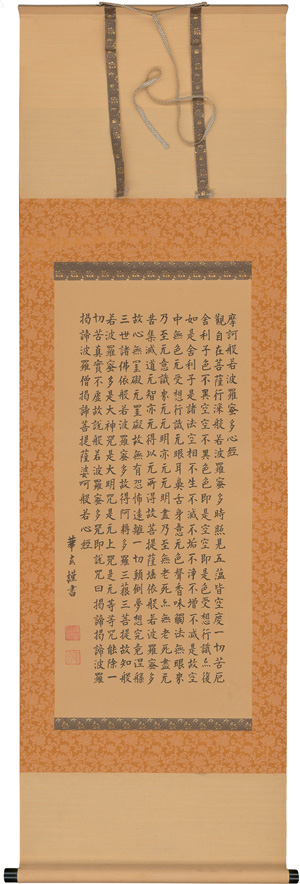 摩訶般若波羅蜜多心經
觀自在菩薩行深般若波羅蜜多時照見五蘊皆空度一切苦厄
舍利子色不異空空不異色色即是空空即是色受想行識亦復
如是舍利子是諸法空相不生不滅不垢不淨不增不減是故空
中無色无受想行識无眼耳鼻舌身意无色聲香味觸法無眼界
乃至无意識界无无明亦无无明盡乃至無老死亦無老死盡无
苦集滅道无智亦无得以无所得故菩提薩埵依般若波羅蜜多
故心無罣礙无罣礙故無有恐怖遠離一切顛倒夢想究竟涅槃
三世諸佛依般若波羅蜜多故得阿耨多羅三藐三菩提故知般
若波羅蜜多是大神咒是大明咒是无上咒是无等等咒能除一
切苦真實不虛故說般若波羅蜜多咒即說咒曰揭諦揭諦波羅
揭諦波羅僧揭諦菩提薩婆訶般若心經
華謹書